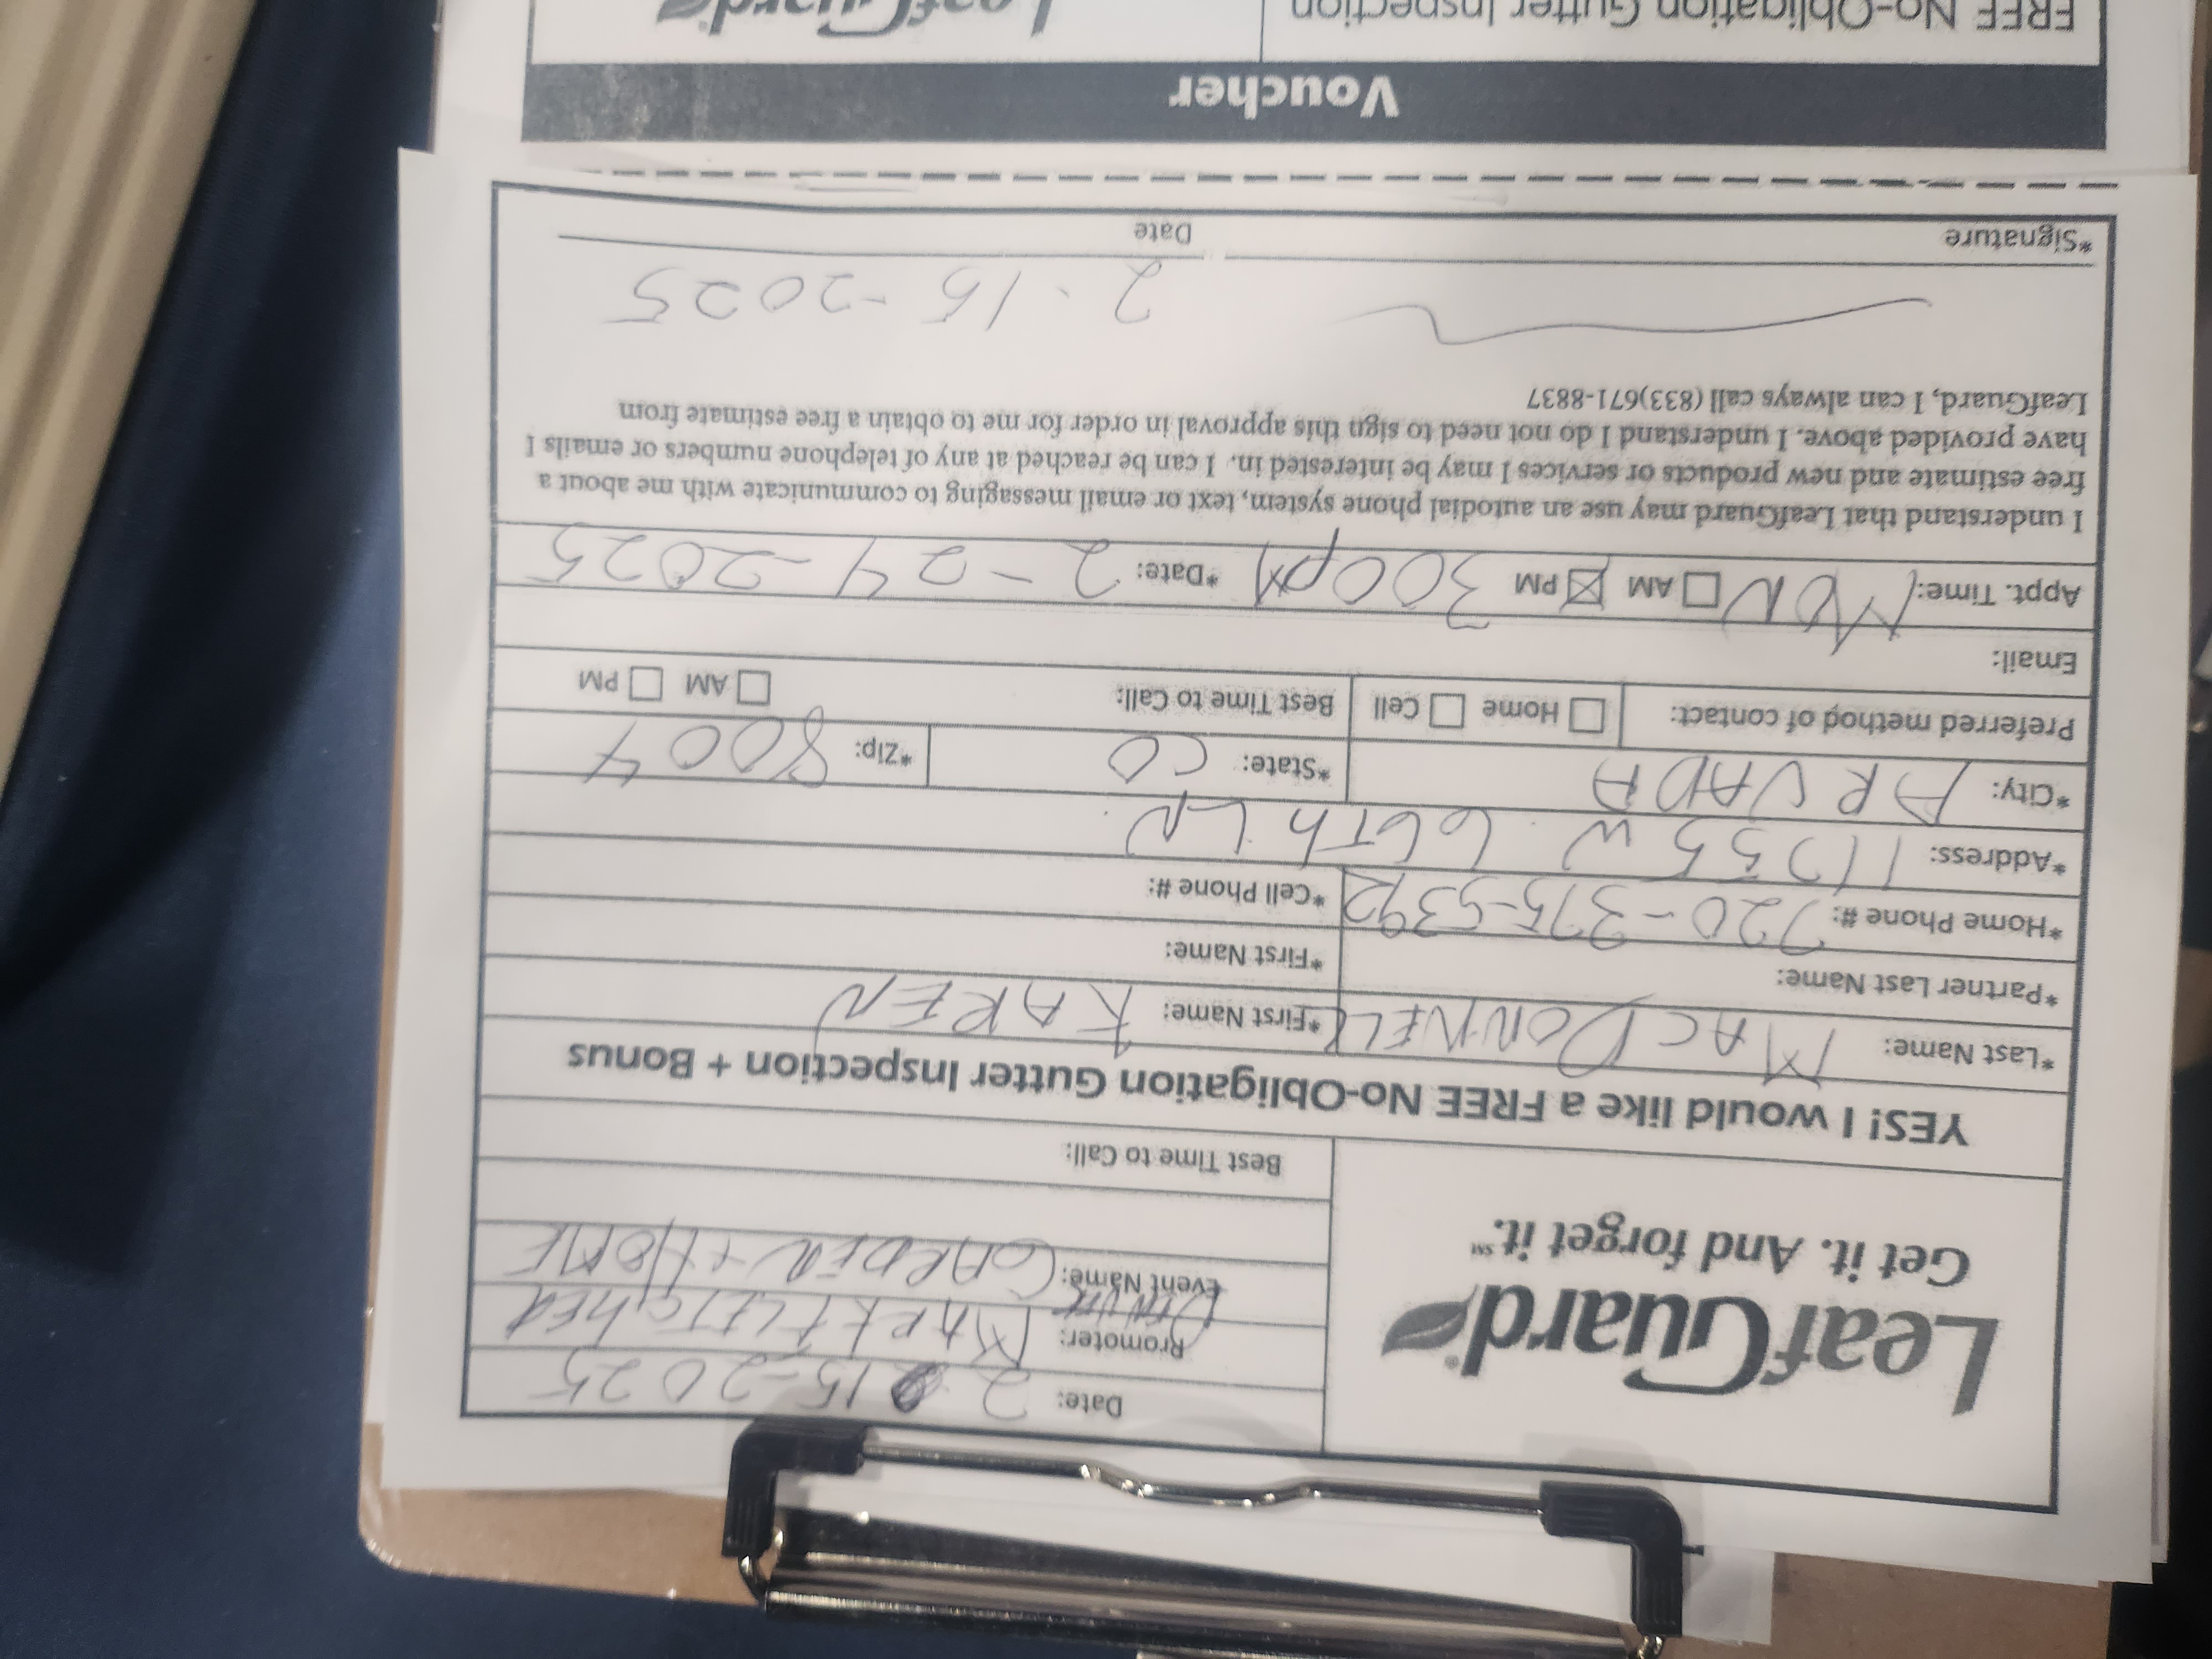 LeafGuard®
Get it. And forget it.℠
Date: 2 15-2025
Promoter: MARK FLETCHER
Event Name: GARDEN + HOME
Best Time to Call:
YES! I would like a FREE No-Obligation Gutter Inspection + Bonus
*Last Name: MAC DONNELL *First Name: KAREN
*Partner Last Name: *First Name:
*Home Phone #: 720-375-5392 *Cell Phone #:
*Address: 11735 W. 66Th LN.
*City: ARVADA *State: CO *Zip: 8004
Preferred method of contact: Home Cell Best Time to Call: AM PM
Email:
Appt. Time: MON AM PM 300pM *Date: 2-24-2025
I understand that LeafGuard may use an autodial phone system, text or email messaging to communicate with me about a
free estimate and new products or services I may be interested in. I can be reached at any of telephone numbers or emails I
have provided above. I understand I do not need to sign this approval in order for me to obtain a free estimate from
LeafGuard, I can always call (833)671-8837
2-15-2025
*Signature Date
Voucher
LeafGuard
FREE No-Obligation Gutter Inspection